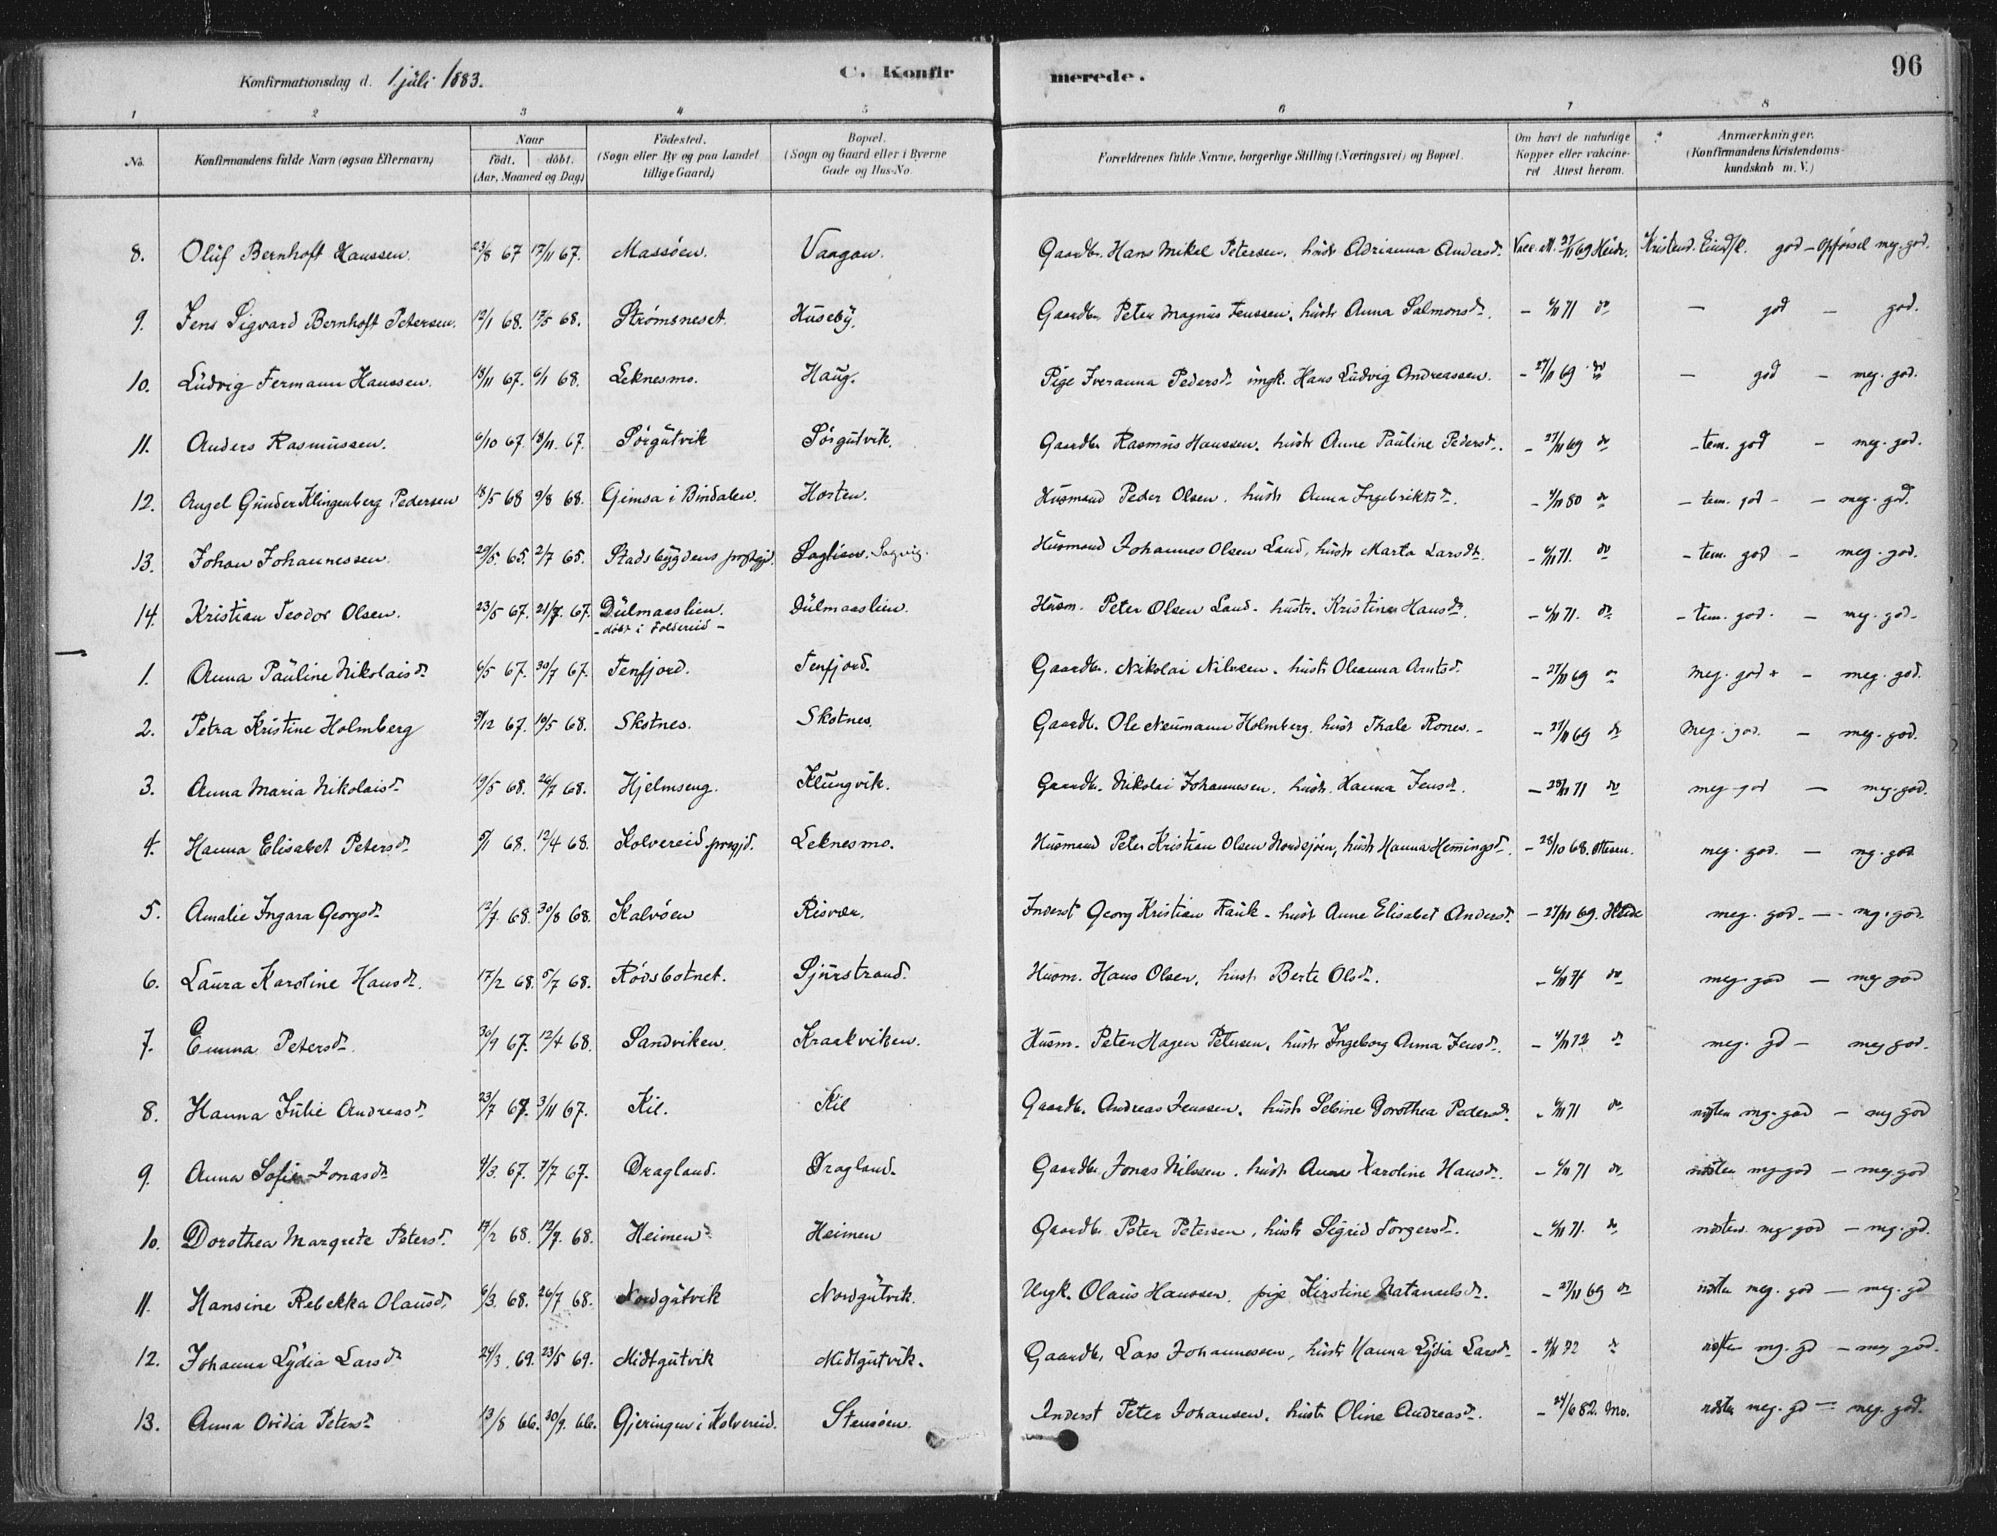 Konfirmationsdag d. 1. juli 1883. C. Konfirmerede. 96
1 2 3 4 5 6 7 8
No. Konfirmandens fulde Navn (ogsaa Efternavn) Naar født. døbt. (Aar, Maaned og Dag) Fødested. (Sogn eller By og paa Landet tillige Gaard) Bopæl. (Sogn og Gaard eller i Byerne Gade og Hus-No. Forældrenes fulde Navne, borgerlige Stilling (Næringsvei) og Bopæl. Om havt de naturlige Kopper eller vakcineret Attest herom. Anmærkninger. (Konfirmandens Kristendomskundskab m. V.)
8. Oluf Bernhoft Hanssen. 23/8 67 17/11 67. Massøen. Vaagan. Gaardbr. Hans Mikel Petersen, hustr Adrianna Andersdr. Vacc. att. 27/11 69 Heide. Kristend. god – Opførsel meg. god.
9. Jens Sigvard Bernhoft Petersen. 12/1 68. 17/5 68. Strømsneset. Huseby. Gaardbr. Peter Magnus Jenssen, hustr Anna Salmonsdr. – 6/11 71 do – god – god.
10. Ludvig Fermann Hanssen. 13/11 67. 6/1 68. Leknesmo. Haug. Pige Iveranna Pedersdr ungk. Hans Ludvig Andreassen. – 27/11 69 do – god – meg. god.
11. Anders Rasmussen. 6/10 67. 18/11 67. Sørgutvik Sørgutvik. Gaardbr. Rasmus Hanssen. hustr Anne Pauline Pedersdr. – 27/11 69 do – tem. god – meg. god.
12. Angel Gunder Klingenberg Pedersen 18/5 68 9/8 68. Gimsa i Bindalen. Horten. Husmand Peder Olsen. hustr Anna Ingebriktsdr. – 4/11 80 do – tem. god – – meg. god.
13. Johan Johannessen. 29/5 65. 2/7 65. Stadsbygdens prestgjd. Saglien. Sagvig. Husmand Johannes Olsen Land, hustr Marta Larsdtr. – 6/11 71. do – tem. god – meg. god.
14. Kristian Teodor Olsen. 23/5 67. 21/7. 67. Dulmaaslien. – døbt i Foldereid – Dulmaaslien. Husm. Peter Olsen Land. hustr. Kristine Hansdr. – 6/11 71. do – tem. god. – meg. god –
1. Anna Pauline Nikolaisdr 6/5 67. 30/7 67. Tenfjord. Tenfjord. Gaardbr. Nikolai Nilssen. hustr Oleanna Arntsdr. – 27/11 69 do meg. god + – meg. god.
2. Petra Kristine Holmberg 31/12 67. 10/5 68. Skotnes. Skotnes. Gaardb. Ole Neumann Holmberg, hust Thale Rones. – – 27/11 69 do Meg. god. – meg. god.
3. Anna Maria Nikolaisdr 19/5 68. 26/7 68. Hjelmseng. Klungvik. Gaardbr. Nikolai Johannesen, hustr. Hanna Jensdr. – 28/11 71 do meg. god – meg. god.
4. Hanna Elisabet Petersdr 5/1 68. 12/4 68. Kolvereid prgjd. Leknesmo. Husmand Peter Kristian Olsen Nordsjøen, hustr Hanna Hemingsdr. – 28/10 68. Ottesen. meg. god. – mg. god
5. Amalie Ingara Georgsdr 12/7 68. 30/8 68. Kalvøen Risvær. Inderst Georg Kristian Hauk – hustr Anne Elisabet Andersdr. – 27/11 69. Heide meg. god. – – mg. god.
6. Laura Karoline Hansdr. 17/2 68. 5/7 68. Rødsbotnet. Sjurstrand. Husm. Hans Olsen, hustr Berte Olsdr. – 6/11 71 do meg. god – meg god
7. Emma Petersdr. 30/9 67. 12/4 68. Sandviken. Kraakviken. Husm. Peter Hagen Petersen, hustr Ingeborg Anna Jensdr. – 4/11 72 do meg. gd – meg god.
8. Hanna Julie Andreasdr 23/7 67. 3/11 67. Kil. Kil Gaardbr. Andreas Jenssen. hustr Sebine Dorothea Pedersdr. – 6/11 71 do næsten mg. god – meg god
9. Anna Sofie Jonasdr 4/3 67. 7/7 67. Dragland. Dragland. Gaardbr. Jonas Nilssen. hustr Anna Karoline Hansdr. – 6/11 71 do næsten meg. god – meg. god
10. Dorothea Margrete Petersdr. 19/2 68. 12/7. 68. Heimen. Heimen Gaardbr Peter Petersen, hustr Sigrid Torgersdr. – 6/11 71. do næsten mg. god – meg. gd.
11. Hansine Rebekka Olausdr. 6/3. 68. 26/7 68. Nordgutvik Nordgutvik. Ungk. Olaus Hanssen. pige Kirstine Natanaelsdr. – 27/11 69 do næsten meg. god – meg. gd
12. Johanna Lydia Larsdr 24/3. 69. 23/5 69. Midtgutvik Midtgutvik. Gaardbr. Lars Johannessen, hustr Hanna Lydia Larsdr – 4/11 72 do næsten mg. gd – meg god.
13. Anna Ovidia Petersdr 13/8 66. 30/9. 66. Gjeringen i Kolvereid. Stensøen. Inderst Peter Johansen, hustr Oline Andreasdr. – 24/6 82. Mo. næsten meg. gd – meg. god.